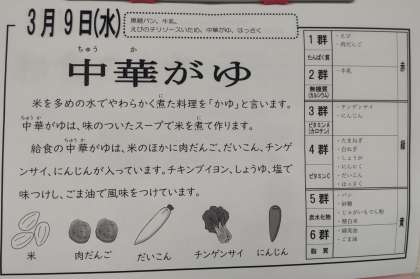 3月9日(水)
黒糖パン、牛乳、
えびのチリソースいため、中華がゆ、はっさく
ちゅう か
中華がゆ
米を多めの水でやわらかく煮た料理を「かゆ」と言います。
ちゅうか に
中華がゆは、味のついたスープで米を煮て作ります。
ちゅうか
給食の中華がゆは、米のほかに肉だんご、だいこん、チンゲ
ンサイ、にんじんが入っています。チキンブイヨン、しょうゆ、塩で
味つけし、ごま油で風味をつけています。
米
肉だんご
だいこん
チンゲンサイ
にんじん
1群
たんぱく質
・えび
・肉だんご
赤
2群
無機質
(カルシウム)
・牛乳
3群
ビタミンA
(カロテン)
・チンゲンサイ
・にんじん
緑
4群
ビタミンC
・たまねぎ
・白ねぎ
・しょうが
・にんにく
・だいこん
・はっさく
5群
炭水化物
・パン
・砂糖
・じゃがいもでん粉
・精白米
黄
6群
脂質
・ごま油